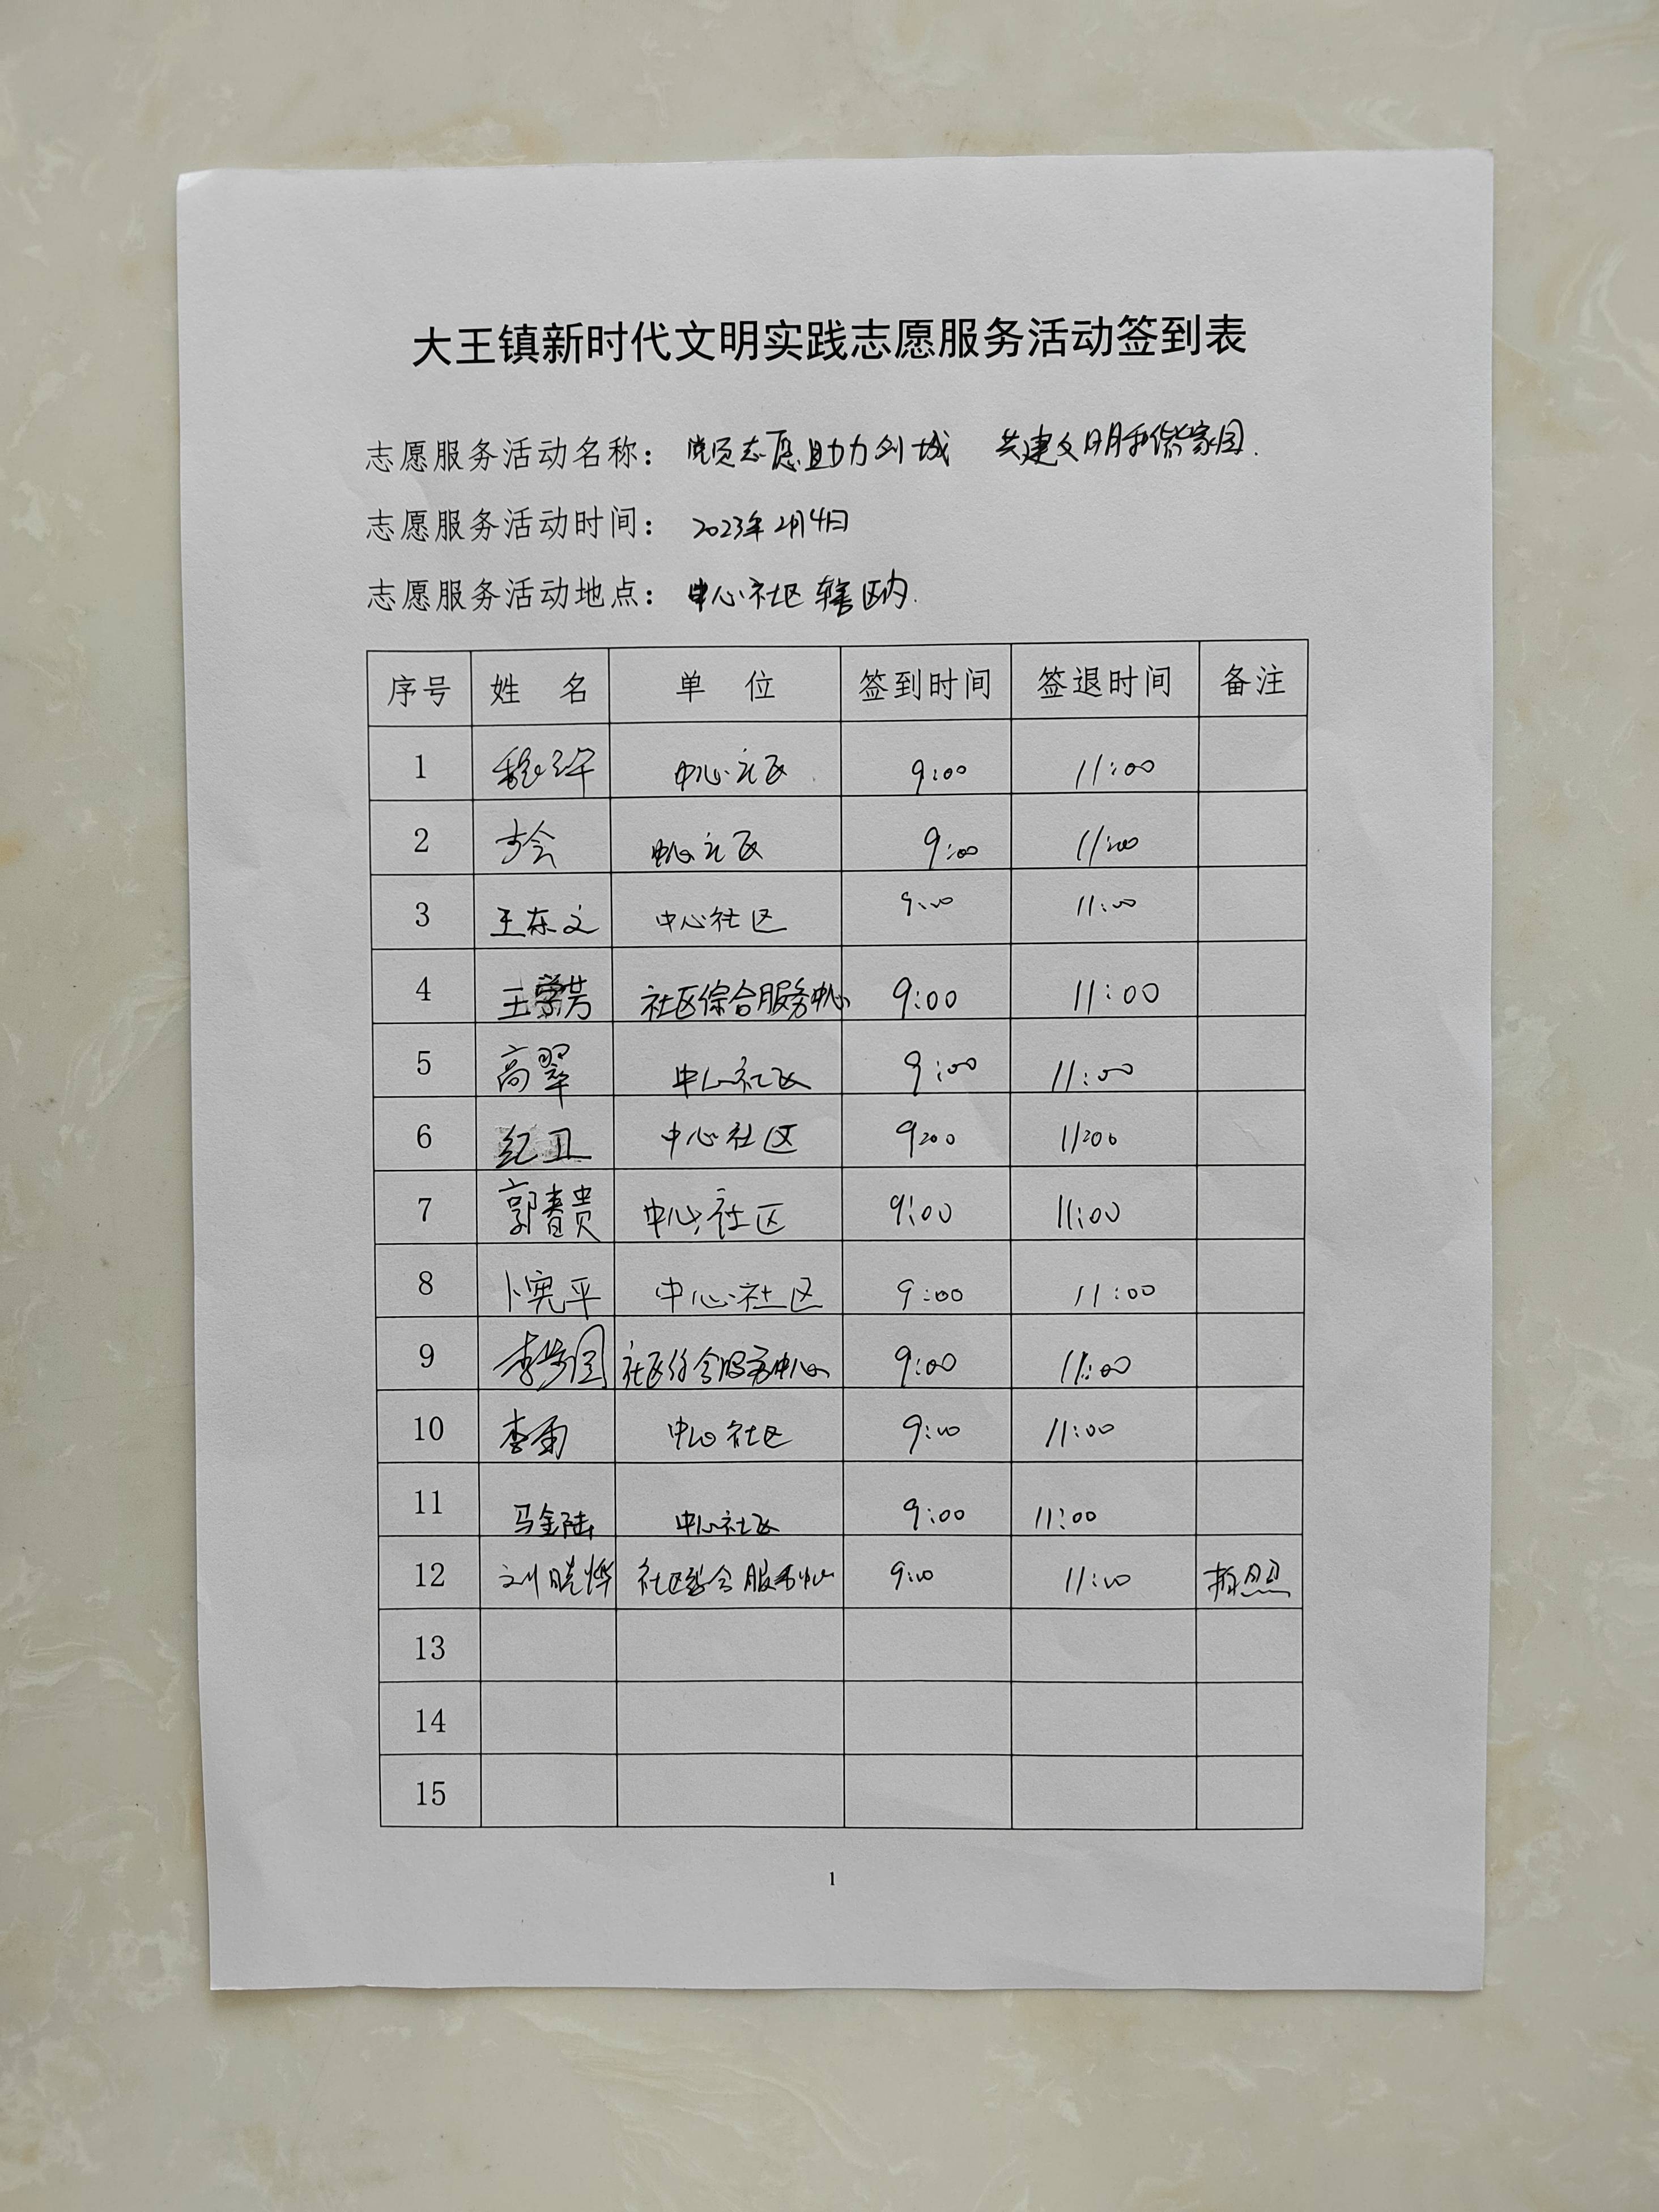 大王镇新时代文明实践志愿服务活动签到表
志愿服务活动名称： 党员志愿助力创城 共建文明和谐家园.
志愿服务活动时间： 2023年2月4日
志愿服务活动地点： 中心社区辖区内.
序号 姓 名 单 位 签到时间 签退时间 备注
1 中心社区 9:00 11:00
2 中心社区 9:00 11:00
3 王东文 中心社区 9:00 11:00
4 王学芳 社区综合服务中心 9:00 11:00
5 高翠 中心社区 9:00 11:00
6 纪卫 中心社区 9:00 11:00
7 郭春贵 中心社区 9:00 11:00
8 卜宪平 中心社区 9:00 11:00
9 社区综合服务中心 9:00 11:00
10 李雨 中心社区 9:00 11:00
11 马金陆 中心社区 9:00 11:00
12 刘晓烨 社区综合服务中心 9:00 11:00 拍照
13
14
15
1